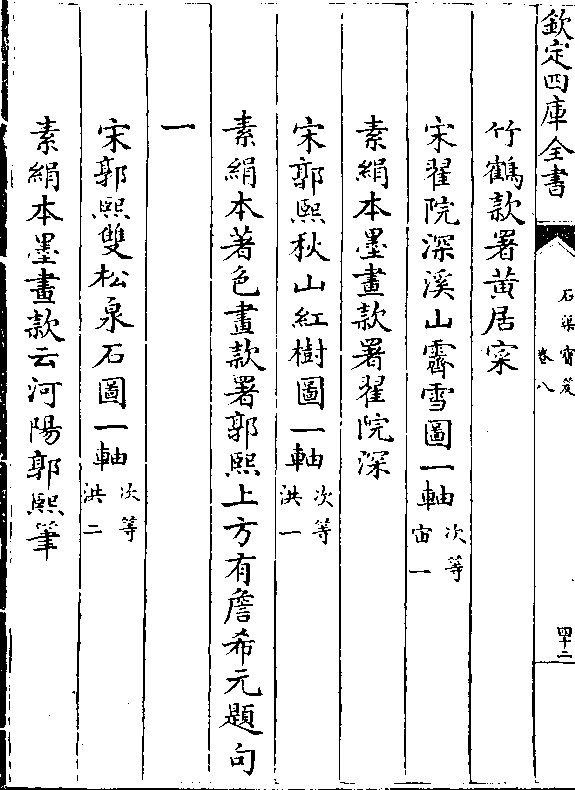 欽定四庫全書
石渠寶笈
卷八
四十二
竹鶴款署黄居寀
宋翟院深溪山霽雪圖一軸 次等 宙一
素絹本墨畫款署翟院深
宋郭熙秋山紅樹圖一軸 次等 洪一
素絹本著色畫款署郭熙上方有詹希元題句
一
宋郭熙雙松泉石圖一軸 次等 洪二
素絹本墨畫款云河陽郭熙筆